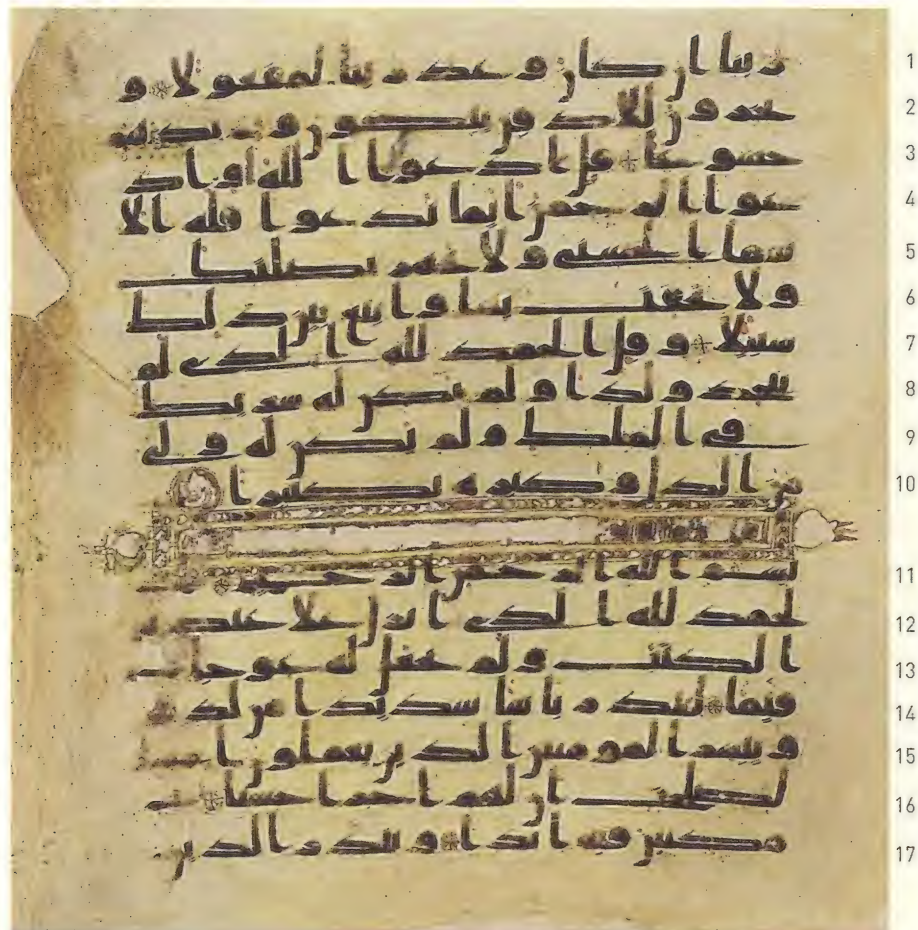 ربنا ان كان وعد ربنا لمفعولا و 1
يخرون للاذقن يبكون ويزيدهم 2
خشوعا قل ادعوا الله او اد 3
عوا الرحمن ايا ما تدعوا فله الا 4
سما الحسنى ولا تجهر بصلتك 5
ولا تخفت بها وابتغ بين ذلك 6
سبيلا وقل الحمد لله الذي لم 7
يتخذ ولدا ولم يكن له شريك 8
في الملك ولم يكن له ولي 9
من الذل وكبره تكبيرا 10
بسم الله الرحمن الرحيم ا 11
لحمد لله الذي انزل على عبده 12
الكتب ولم يجعل له عوجا 13
قيما لينذر باسا شديدا من لدنه 14
ويبشر المومنين الذين يعملون ا 15
لصلحت ان لهم اجرا حسنا 16
مكثين فيه ابدا وينذر الذين 17